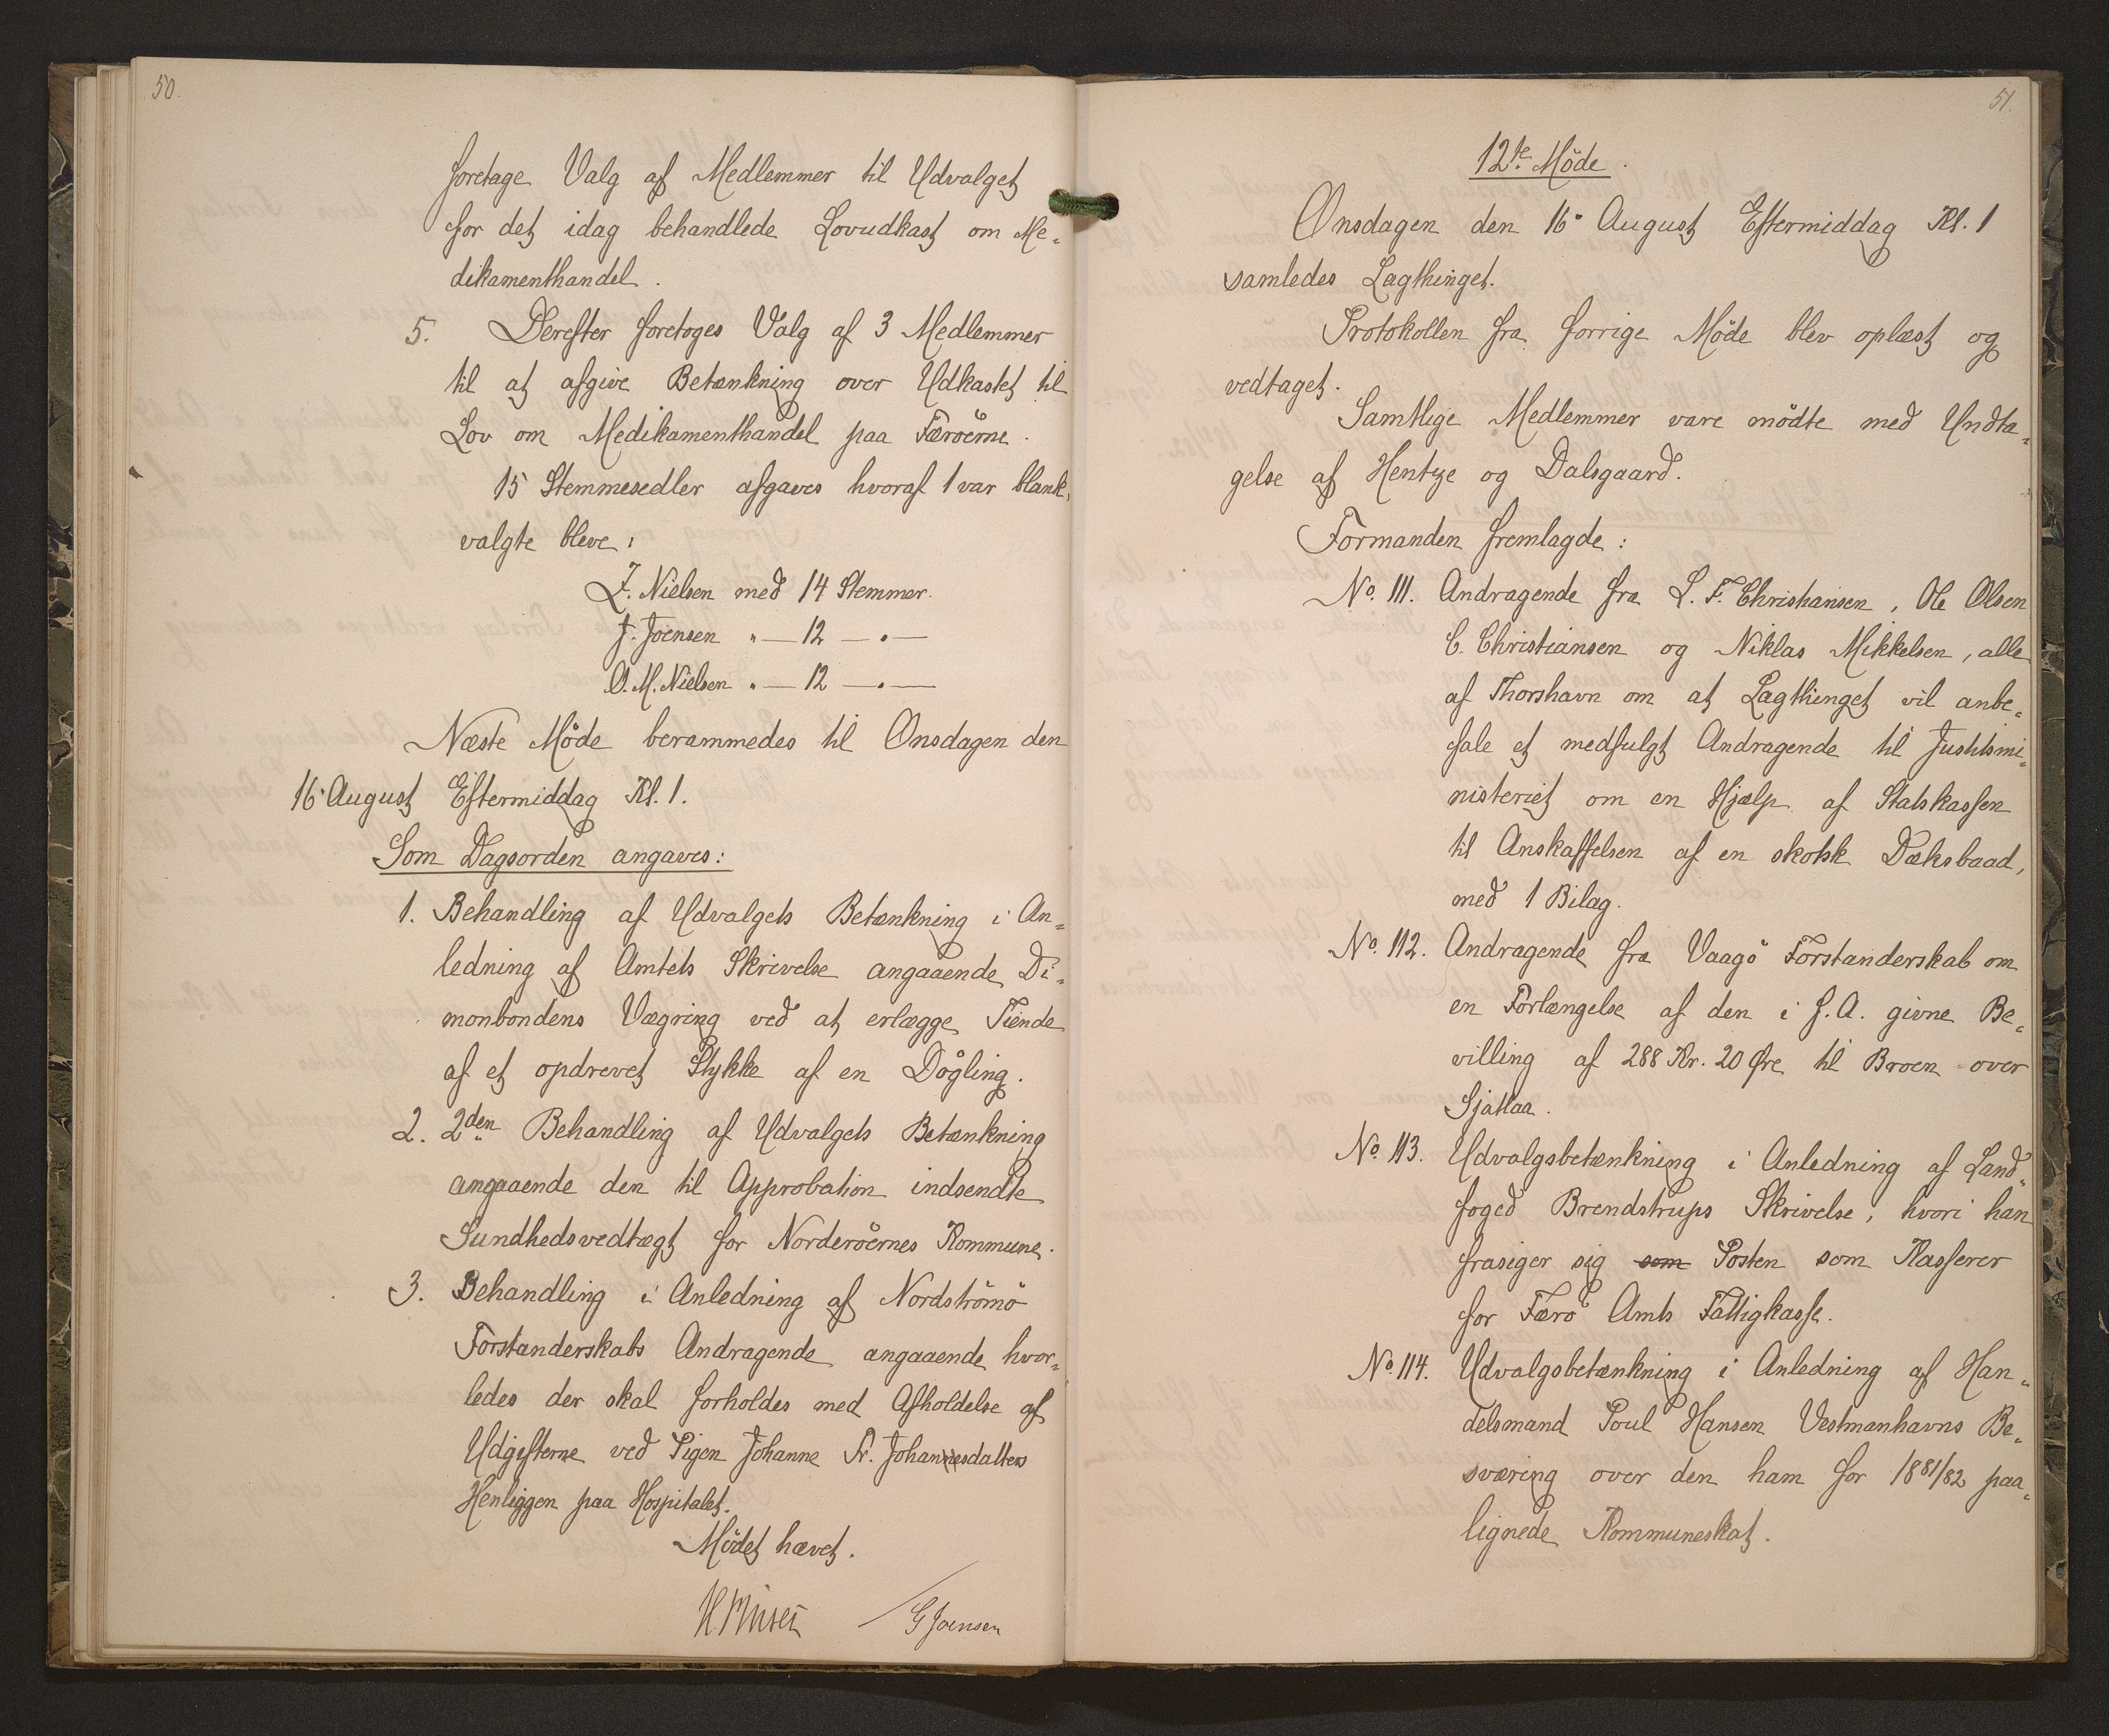 50.
foretage Valg af Medlemmer til Udvalget
for det idag behandlede Lovudkast om Me-
dikamenthandel.
5. Derefter foretoges Valg af 3 Medlemmer
til at afgive Betænkning over Udkastet til
Lov om Medikamenthandel paa Færöerne.
15 Stemmesedler afgaves hvoraf 1 var blank,
valgte bleve:
Z. Nielsen med 14 Stemmer.
J. Joensen " — 12 — " —
O. M. Nielsen " — 12 — " —
Næste Möde berammedes til Onsdagen den
16' August Eftermiddag Kl. 1.
Som Dagsorden angaves:
1. Behandling af Udvalgets Betænkning i An-
ledning af Amtets Skrivelse angaaende Di-
monbondens Vægring ved at erlægge Tiende
af et opdrevet Stykke af en Dögling.
2. 2den Behandling af Udvalgets Betænkning
angaaende den til Approbation indsendte
Sundhedsvedtægt for Norderöernes Kommune.
3. Behandling i Anledning af Nordströmö
Forstanderskabs Andragende angaaende hvor-
ledes der skal forholdes med Afholdelse af
Udgifterne ved Pigen Johanne Fr. Johannesdatters
Henliggen paa Hospitalet.
Mödet hævet.
G Joensen
51.
12te Möde.
Onsdagen den 16' August Eftermiddag Kl. 1
samledes Lagthinget.
Protokollen fra forrige Möde blev oplæst og
vedtaget.
Samtlige Medlemmer vare mödte med Undta-
gelse af Hentze og Dalsgaard.
Formanden fremlagde:
No. 111. Andragende fra L. F. Christiansen, Ole Olsen
C. Christiansen og Niklas Mikkelsen, alle
af Thorshavn om at Lagthinget vil anbe-
fale et medfulgt Andragende til Justitsmi-
nisteriet om en Hjælp af Statskassen
til Anskaffelsen af en skotsk Dæksbaad,
med 1 Bilag.
No. 112. Andragende fra Vaagö Forstanderskab om
en Forlængelse af den i f. A. givne Be-
villing af 288 Kr. 20 Øre til Broen over
Sjatlaa.
No. 113. Udvalgsbetænkning i Anledning af Land-
foged Brendstrups Skrivelse, hvori han
frasiger sig som Posten som Kasserer
for Færö Amts Fattigkasse.
No. 114. Udvalgsbetænkning i Anledning af Han-
delsmand Poul Hansen Vestmanhavns Be-
sværing over den ham for 1881/82 paa-
lignede Kommuneskat.